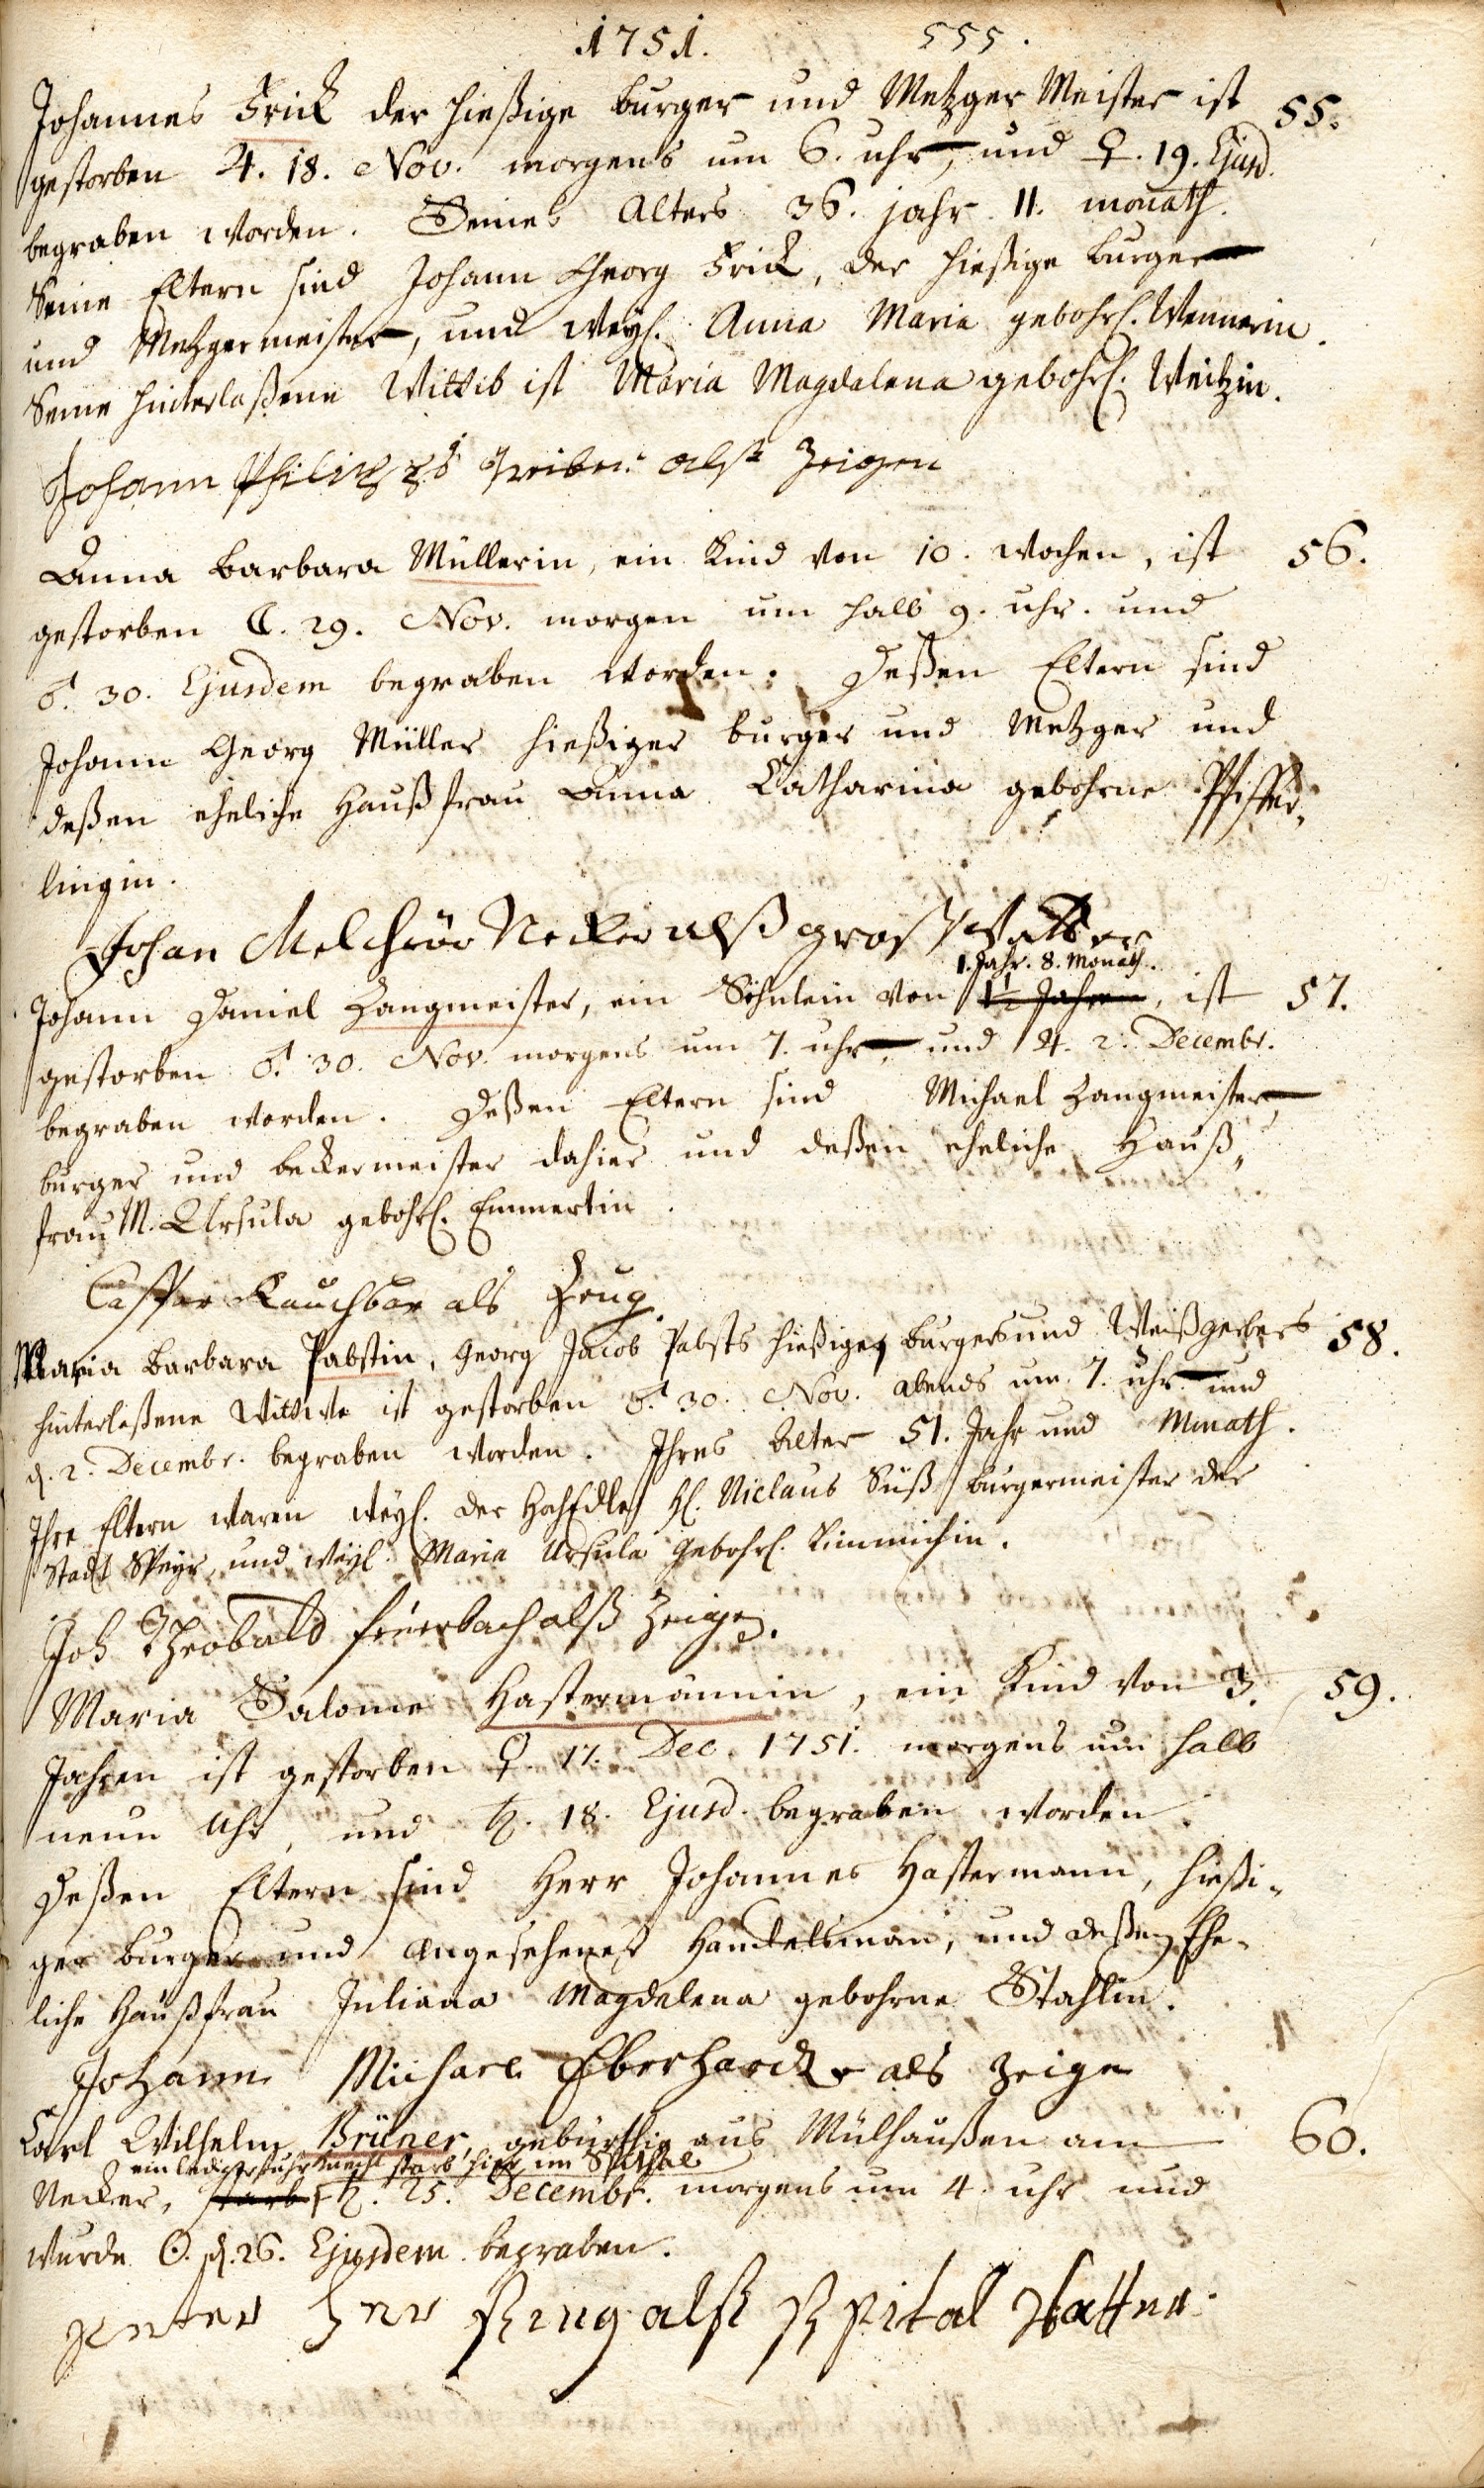 1751. 555.
Johannes Frick der hießige burger und Metzger Meister ist 55.
gestorben ♃. 18. Nov. morgens um 6. uhr, und ♀. 19. Ejusd.
begraben worden. Seines Alters 36. jahr 11. monath.
Seine Eltern sind Johann Georg Frick, der hießige burger
und Metzgermeister, und weyl. Anna Maria gebohrl. Wennerin.
Seine hinterlaßene Wittib ist Maria Magdalena gebohrl. Weitzin.
Johann Philipps als Zeigen
Anna Barbara Müllerin, ein Kind von 10. wochen, ist 56.
gestorben ☾. 29. Nov. morgen um halb 9. uhr. und
♂. 30. Ejusdem begraben worden. Deßen Eltern sind
Johann Georg Müller hießiger burger und Metzger und
deßen eheliche Haußfrau Anna Catharina gebohrne Pfiffer,,
lingin.
Johan Melchior Necker alß groß Vatter
1. Jahr. 8. Monath.
Johann Daniel Zangmeister, ein Söhnlein von 1½ Jahren, ist 57.
gestorben ♂. 30. Nov. morgens um 7. uhr, und ♃. 2. Decembr.
begraben worden. Deßen Eltern sind Michael Zangmeister,
burger und beckermeister dahier und deßen eheliche Hauß,,
frau M. Ursula gebohrl. Emmertin.
Caspar Rauchbar als Zeug
Maria Barbara Pabstin, Georg Jacob Pabsts hießigen burgers und Weißgerbers 58.
hinterlaßene Wittwe ist gestorben ♂. 30. Nov. abends um 7. uhr und
d. 2. Decembr. begraben worden. Ihres Alter 51. Jahr und Monath.
Ihre Eltern waren weyl. der HochEdle H. Niclaus Süß burgermeister der
Stadt Speyr, und weyl. Maria Ursula gebohrl. Kimmichin.
Joh Theobald feuerbach alß Zeigen.
Maria Salome Hastermännin, ein Kind von 3. 59.
Jahren ist gestorben ♀. 17. Dec. 1751. morgens um halb
neun Uhr, und ♄. 18. Ejusd. begraben worden.
Deßen Eltern sind Herr Johannes Hastermann, hießi-
ger burger und angesehener Handelsman, und deßen Ehe-
liche Haußfrau Juliana Magdalena gebohrne Stahlin.
Johann Michael Eberhardt als Zeige
Carl Wilhelm Brüner, gebürthig aus Mülhaußen am 60.
ein lediger fuhrknecht starb hier im Spithal
Necker, starb ♄. 25. Decembr. morgens um 4. uhr und
wurde ☉. d. 26. Ejusdem begraben.
Ring alß Spital Vatter